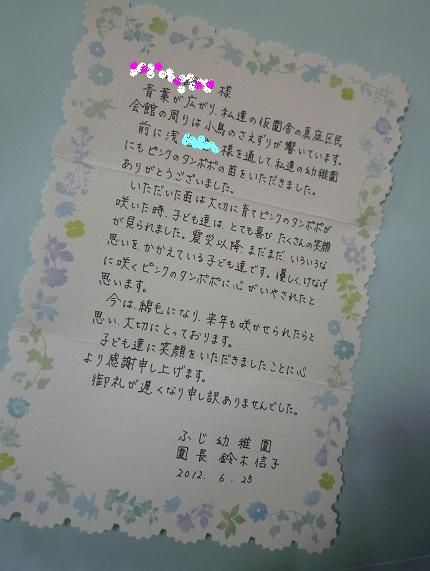 様
青葉が広がり、私達の仮園舎の真庭区民
会館の周りは小鳥のさえずりが響いています。
前に浅 様を通して、私達の幼稚園
にもピンクのタンポポの苗をいただきました。
ありがとうございました。
いただいた苗は大切に育てピンクのタンポポが
咲いた時、子ども達は、とても喜びたくさんの笑顔
が見られました。震災以降、まだまだ、いろいろな
思いをかかえている子ども達です。優しく、けなげ
に咲くピンクのタンポポに心がいやされたと
思います。
今は、綿毛になり、来年も咲かせられたらと
思い、大切にとっております。
子ども達に笑顔をいただきましたことに心
より感謝申し上げます。
御礼が遅くなり申し訳ありませんでした。
ふじ幼稚園
園長 鈴木信子
2012. 6. 25